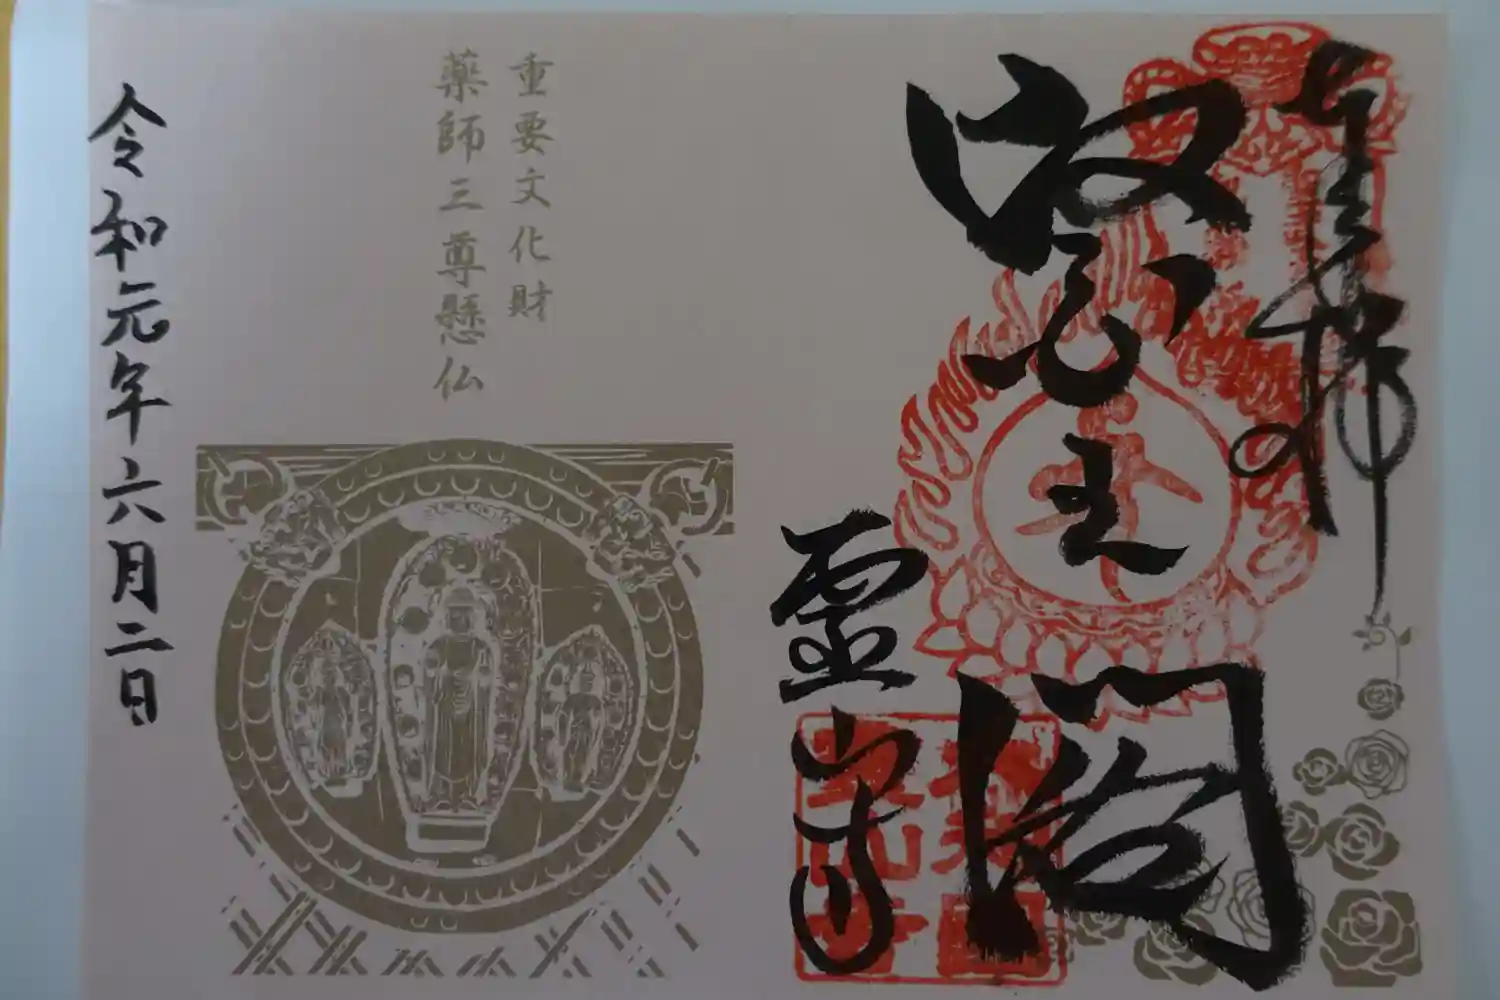 奉拝
醫王閣
霊山寺
重要文化財
薬師三尊懸仏
令和元年六月二日